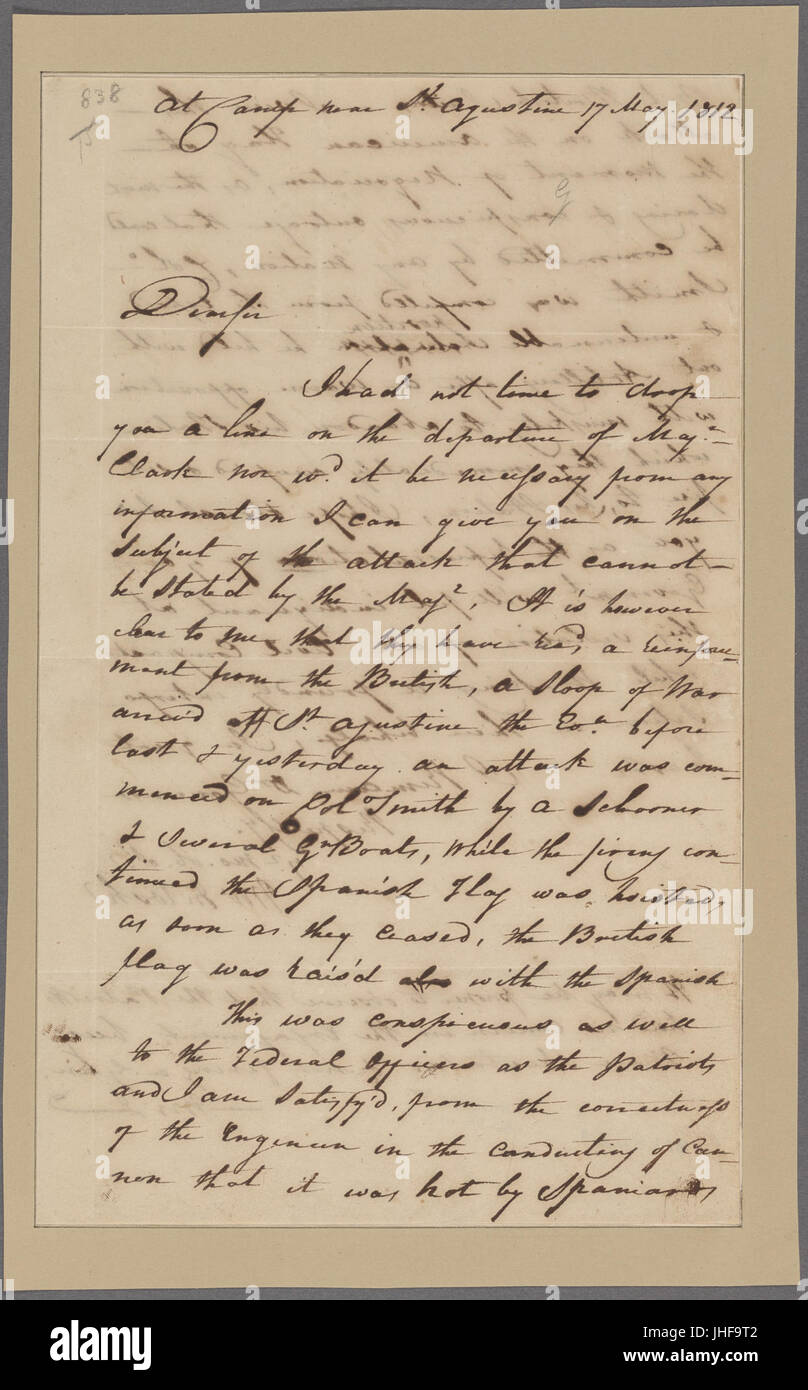 838
At Camp near St. Agustine 17 May 1812
Dear Sir
I had not time to drop
you a line on the departure of Majr.
Clark nor wd. it be necessary from any
information I can give you on the
Subject of the attack that cannot
be Stated by the Majr, It is however
clear to me that they have recd a reinforce-
ment from the British, a Sloop of War
arriv'd off St. Agustine the Evn. before
last & yesterday an attack was com-
menced on Col Smith by a Schooner
& Several Gn Boats, While the firing con-
tinued the Spanish Flag was hoisted,
as soon as they Ceased, the British
flag was rais'd also with the Spanish
This was conspicuous as well
to the Federal Officers as the Patriots
and I am Satisfy'd, from the correctness
of the Engineer in the conducting of Can-
non that it was not by Spaniards
alamy
Image ID: JHF9T2
www.alamy.com